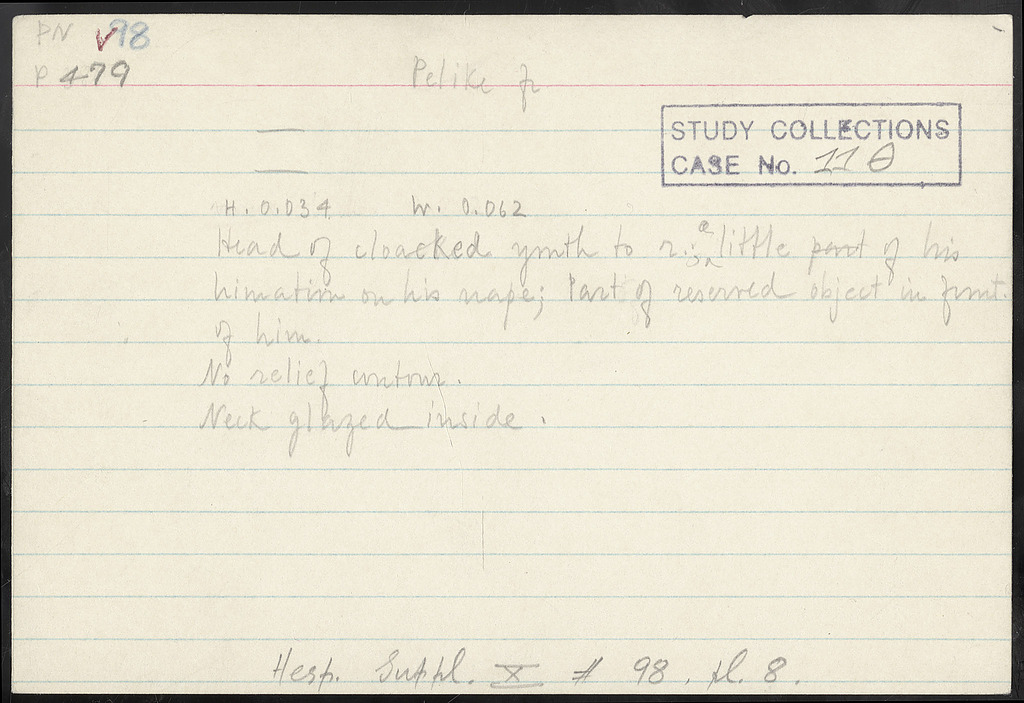 PN 98
P 479
Pelike fr
STUDY COLLECTIONS
CASE No. 11 θ
H. 0.034 W. 0.062
Head of cloacked youth to r.; a little part of his
himation on his nape; Part of reserved object in front
of him.
No relief contour.
Neck glazed inside.
Hesp. Suppl. X # 98. pl. 8.